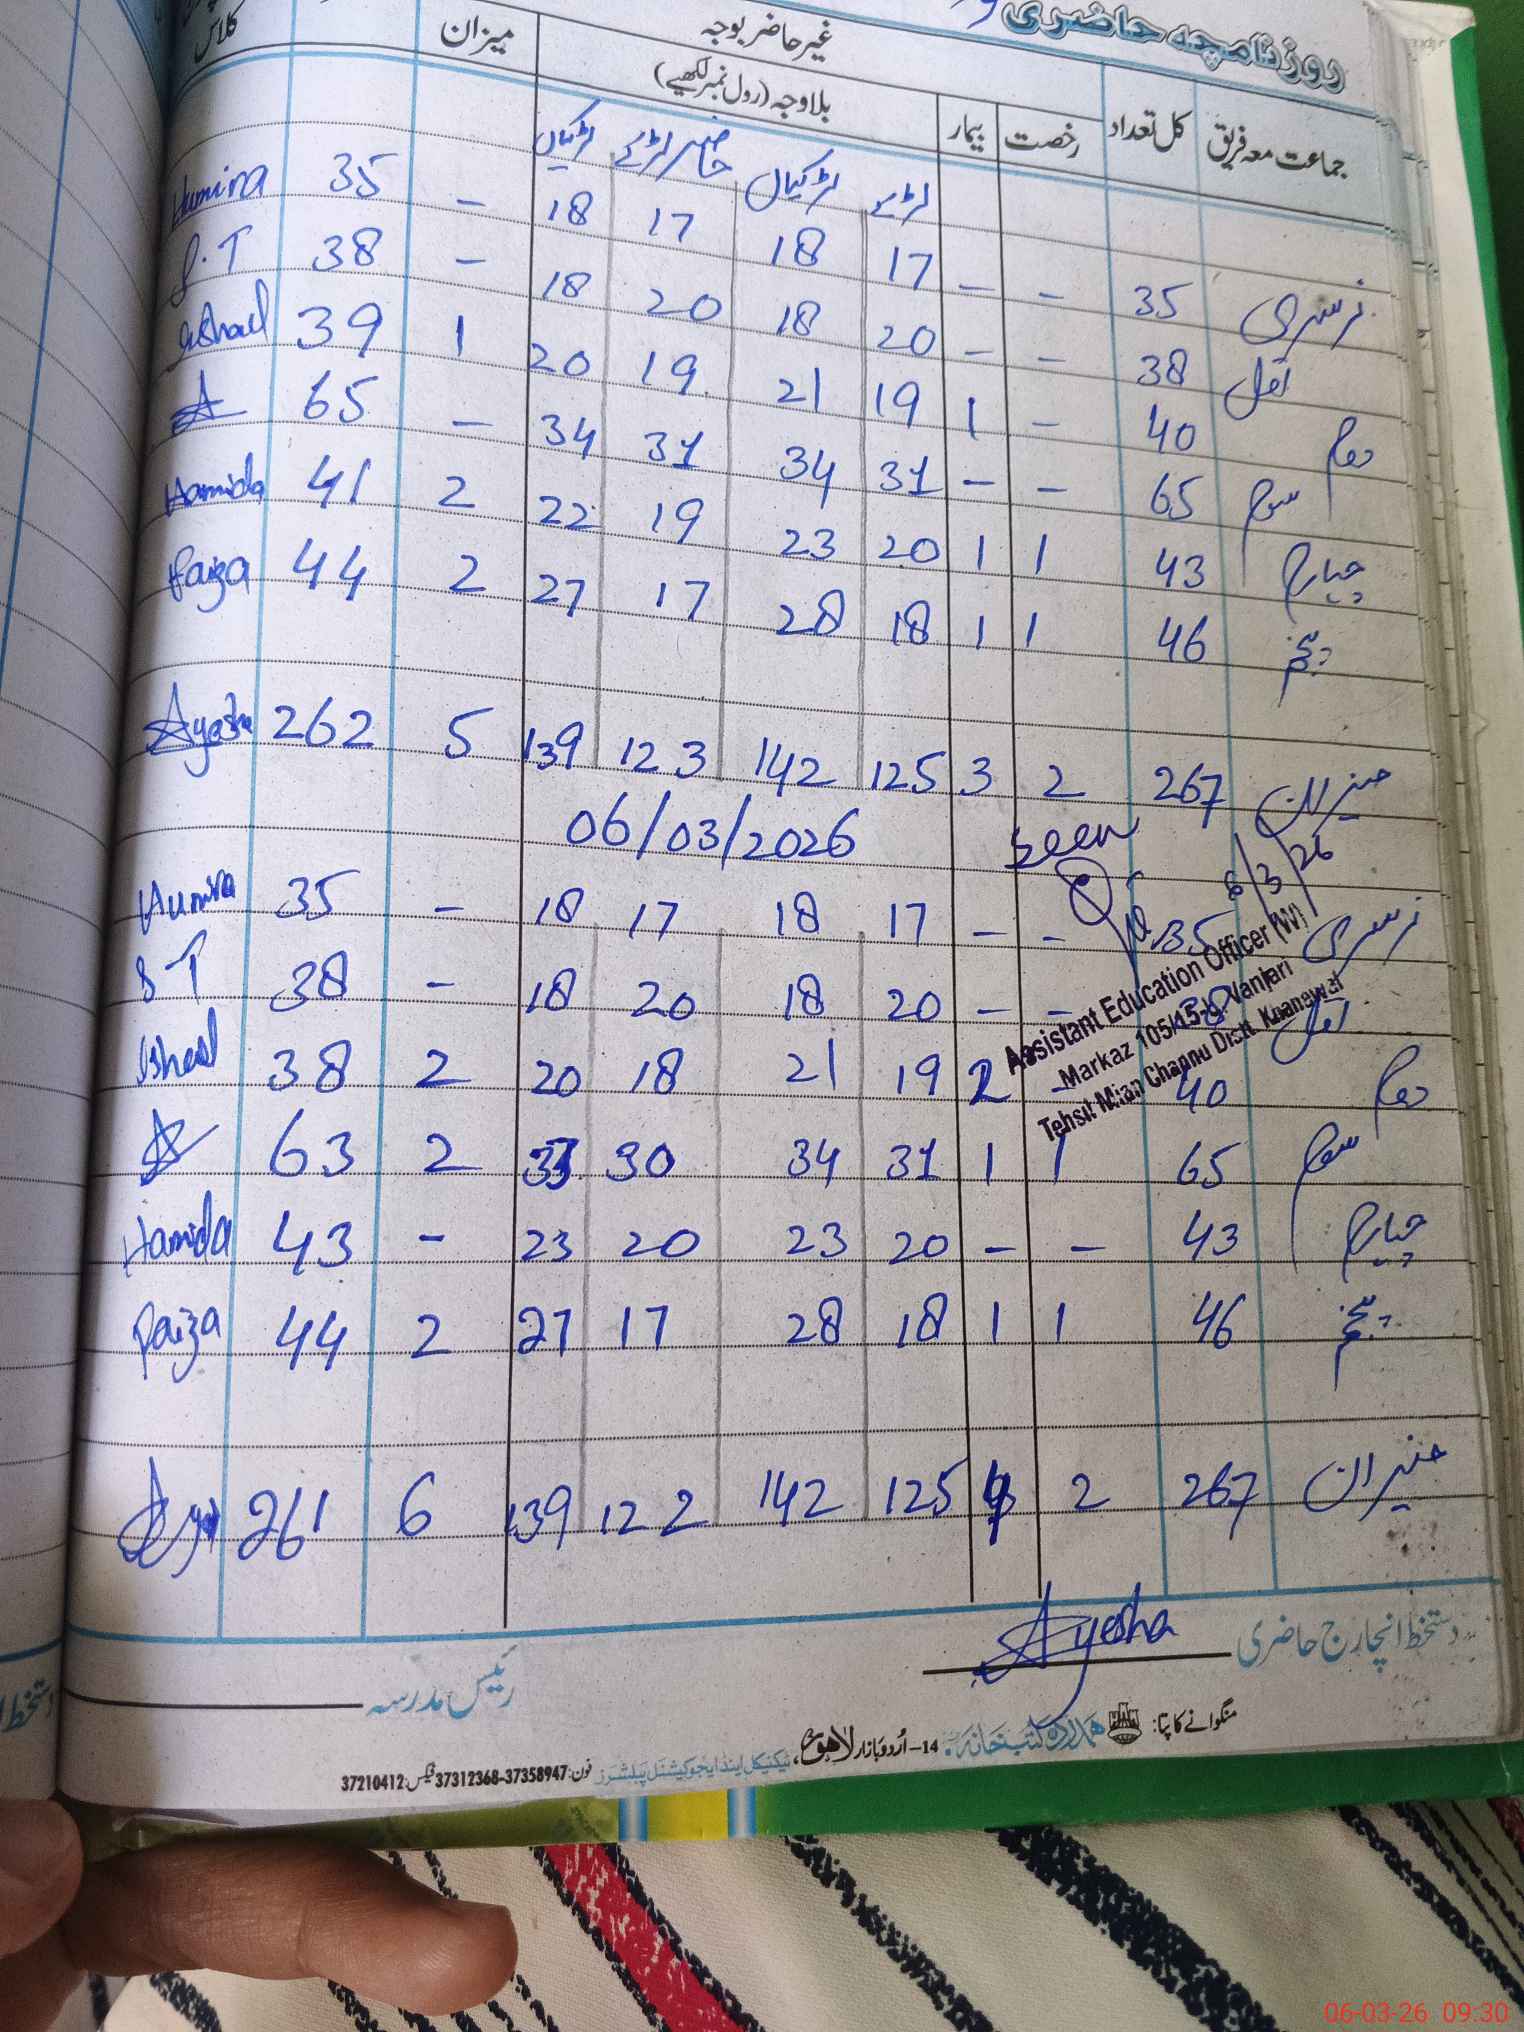 روزنامچہ حاضری
جماعت معہ فریق کل تعداد غیر حاضر بوجہ میزان کلاس
رخصت بیمار بلاوجہ (رول نمبر لکھیے)
لڑکے لڑکیاں حاضر لڑکے لڑکیاں
نرسری 35 - - 17 18 17 18 - 35 Humira
اول 38 - - 20 18 20 18 - 38 S.T
دوم 40 - 1 19 21 19 20 1 39 Eshal
سوم 65 - - 31 34 31 34 - 65
چہارم 43 1 1 20 23 19 22 2 41 Hamida
پنجم 46 1 1 18 28 17 27 2 44 Faiza
میزان 267 2 3 125 142 123 139 5 262 Ayesha
06/03/2026
Seen
6/3/26
Assistant Education Officer (W)
Markaz 105/15-L Vanjari
Tehsil Mian Channu Distt. Khanewal
نرسری 35 - - 17 18 17 18 - 35 Humira
اول 38 - - 20 18 20 18 - 38 S T
دوم 40 - 2 19 21 18 20 2 38 Eshal
سوم 65 1 1 31 34 30 33 2 63
چہارم 43 - - 20 23 20 23 - 43 Hamida
پنجم 46 1 1 18 28 17 27 2 44 Faiza
میزان 267 2 4 125 142 122 139 6 261
دستخط انچارج حاضری Ayesha
رئیس مدرسہ
منگوانے کا پتا: ہمدرد کتب خانہ 14-اُردو بازار لاہور، ٹیکنیکل اینڈ ایجوکیشنل پبلشرز فون: 37358947-37312368 فیکس: 37210412
دستخط
06-03-26 09:30